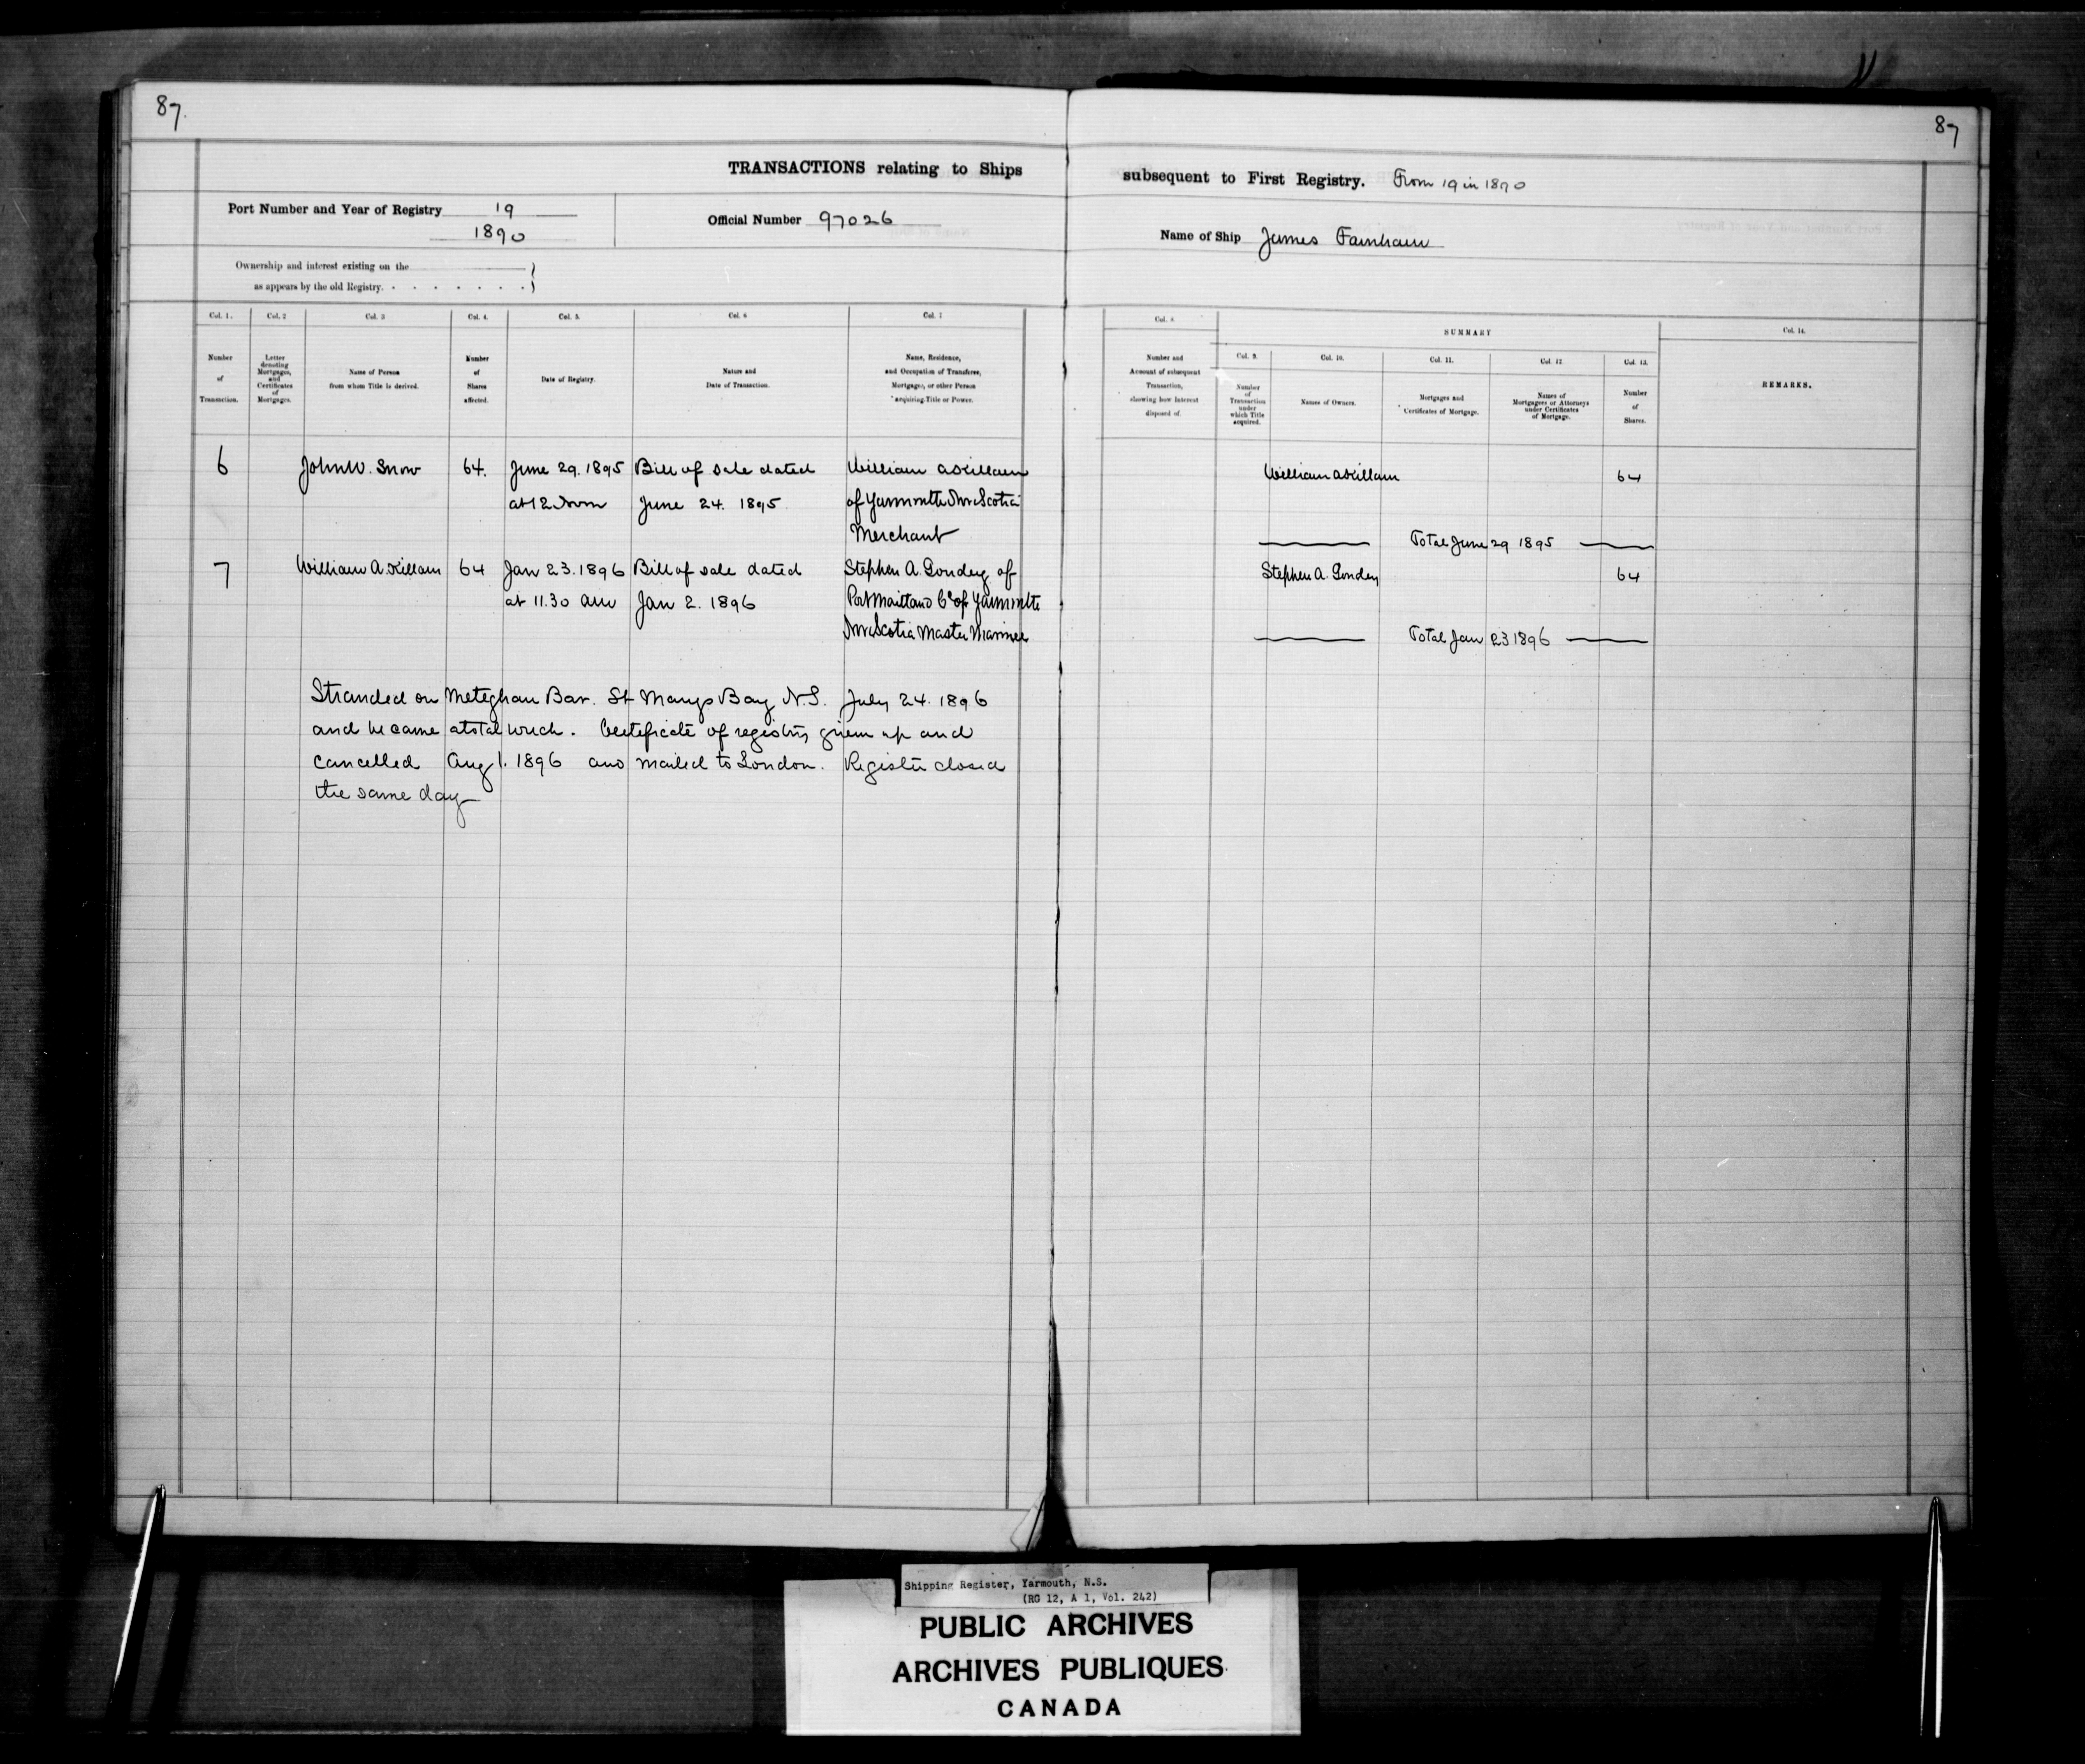 87.
87
TRANSACTIONS relating to Ships
subsequent to First Registry. From 19 in 1890
Port Number and Year of Registry 19
1890
Official Number 97026
Name of Ship James
Ownership and interest existing on the
as appears by the old Registry.
Col. 1.
Col. 2
Col. 3
Col. 4.
Col. 5.
Col. 6
Col. 7
Number
of
Transaction.
Letter
denoting
Mortgages,
and
Certificates
of
Mortgages.
Name of Person
from whom Title is derived.
Number
of
Shares
affected.
Date of Registry.
Nature and
Date of Transaction.
Name, Residence,
and Occupation of Transferee,
Mortgagee, or other Person
acquiring Title or Power.
Col. 8
SUMMARY
Col. 14.
Number and
Account of subsequent
Transaction,
showing how Interest
disposed of.
Col. 9.
Col. 10.
Col. 11.
Col. 12
Col. 13.
Number
of
Transaction
under
which Title
acquired.
Names of Owners.
Mortgages and
Certificates of Mortgage.
Names of
Mortgagees or Attorneys
under Certificates
of Mortgage.
Number
of
Shares.
REMARKS.
6 John W. Snow 64. June 29. 1895 Bill of sale dated William A Killam
at 12 Noon June 24. 1895 of Yarmouth Nova Scotia
Merchant
William A Killam 64
Total June 29 1895
7 William A. Killam 64 Jan 23. 1896 Bill of sale dated Stephen A. Gondey of
at 11.30 am Jan 2. 1896 Port Maitland Co of Yarmouth
Nova Scotia Master Mariner
Stephen A. Gondey 64
Total Jan 23 1896
Stranded on Meteghan Bar. St Marys Bay N.S. July 24. 1896
and became a total wreck. Certificate of registry given up and
cancelled Aug 1. 1896 and mailed to London. Register closed
the same day
Shipping Register, Yarmouth, N.S.
(RG 12, A 1, Vol. 242)
PUBLIC ARCHIVES
ARCHIVES PUBLIQUES
CANADA